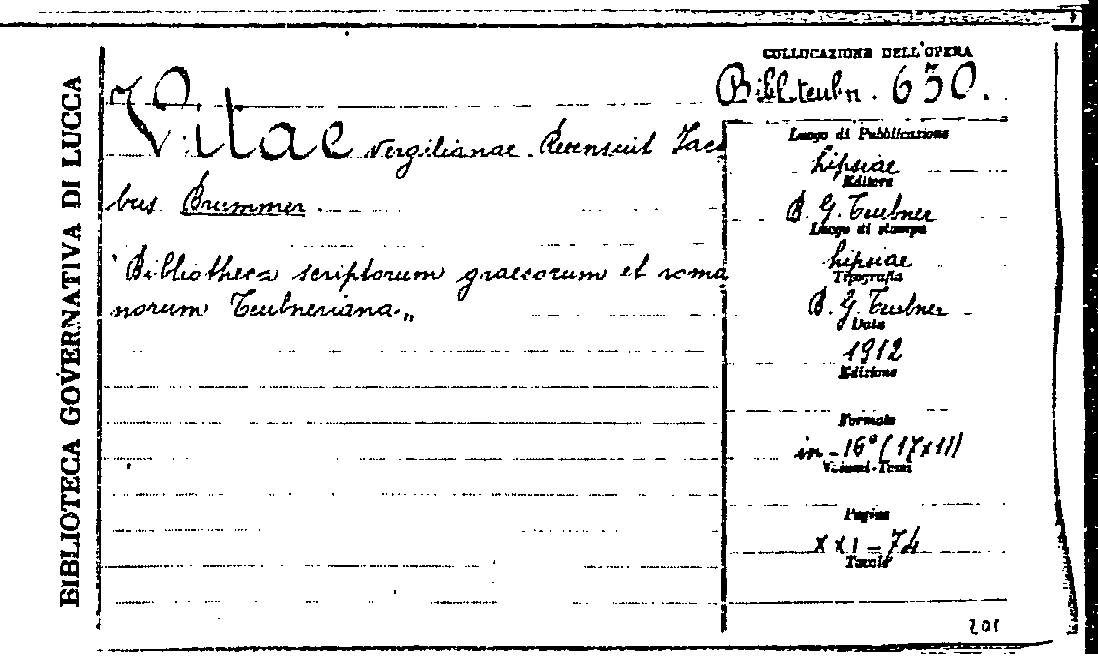 BIBLIOTECA GOVERNATIVA DI LUCCA
COLLOCAZIONE DELL'OPERA
Bibl. teubn. 630.
Vitae Vergilianae. Recensuit Jaco
bus Brummer.
"Bibliotheca scriptorum graecorum et roma
norum Teubneriana„
Luogo di Pubblicazione
Lipsiae
Editore
B. G. Teubner
Luogo di stampa
Lipsiae
Tipografia
B. G. Teubner
Data
1912
Edizione
Formato
in-16° (17x11)
Volumi-Tomi
Pagine
XXI-74
Tavole
201